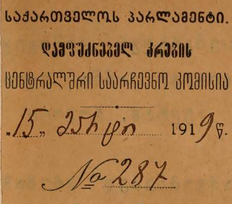 საქართველოს პარლამენტი.
დამფუძნებელ კრების
ცენტრალური საარჩევნო კომისია
„15„ მარტი 1919 წ.
№ 287